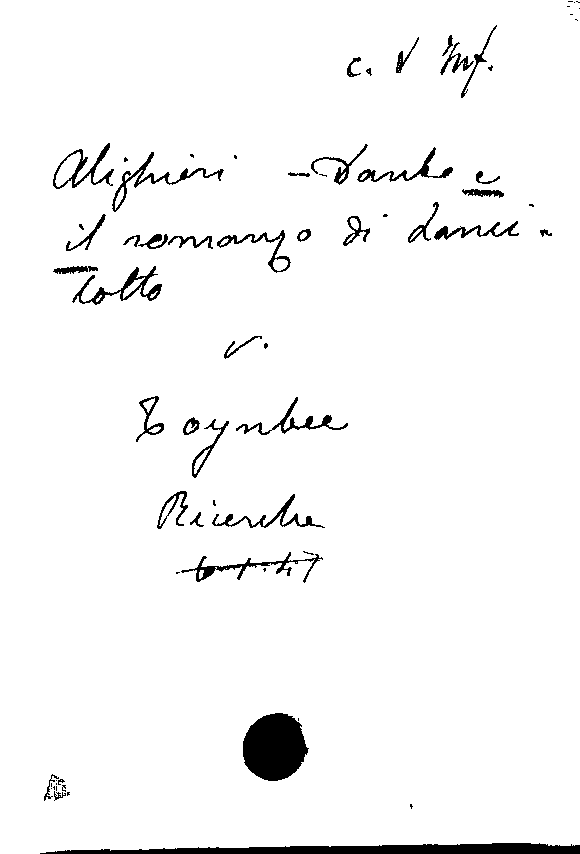 c. V Inf.
Alighieri - Dante e
il romanzo di Lanci-
lotto
v.
Toynbee
Ricerche
6.1.47